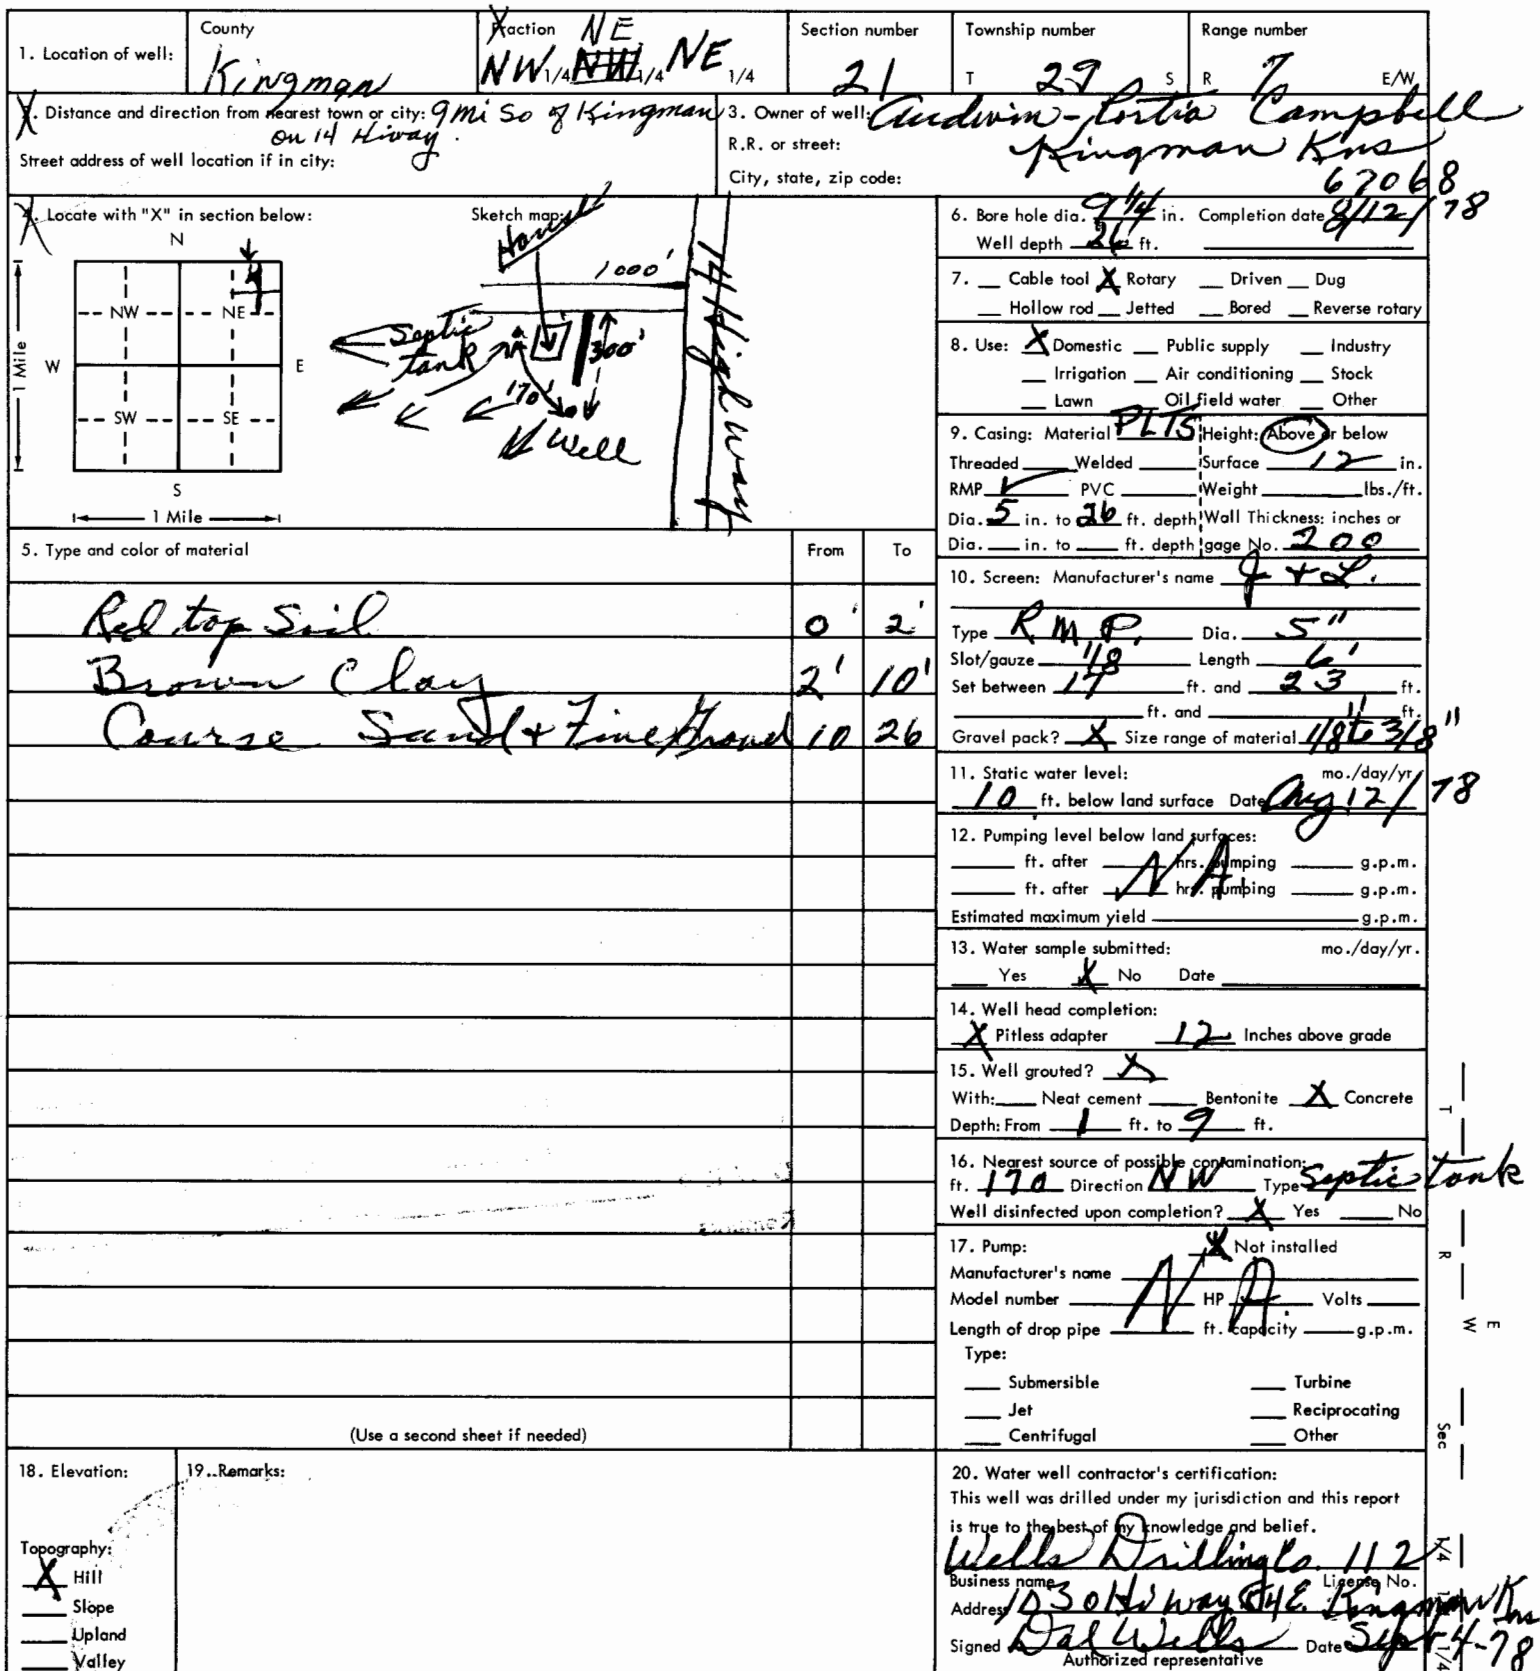 1. Location of well:
County
Kingman
Fraction NE
NW 1/4 NW 1/4 NE 1/4
Section number
21
Township number
T 29 S
Range number
R 7 E/W
2. Distance and direction from nearest town or city: 9 mi So of Kingman
on 14 Hiway.
Street address of well location if in city:
3. Owner of well: Audwin-Portia Campbell
R.R. or street: Kingman Kns
City, state, zip code: 67068
4. Locate with "X" in section below:
N
NW NE
W E
SW SE
S
1 Mile
1 Mile
Sketch map:
House
1000'
Septic
tank
300'
170'
Well
14 Highway
5. Type and color of material From To
Red top Soil 0' 2'
Brown Clay 2' 10'
Course Sand & Fine 10 26
(Use a second sheet if needed)
6. Bore hole dia. 9 1/4 in. Completion date 8/12/78
Well depth 26 ft.
7. Cable tool X Rotary Driven Dug
Hollow rod Jetted Bored Reverse rotary
8. Use: X Domestic Public supply Industry
Irrigation Air conditioning Stock
Lawn Oil field water Other
9. Casing: Material PLTS Height: Above or below
Threaded Welded Surface 12 in.
RMP ✓ PVC Weight lbs./ft.
Dia. 5 in. to 26 ft. depth Wall Thickness: inches or
Dia. in. to ft. depth gage No. 200
10. Screen: Manufacturer's name J & L.
Type R.M.P. Dia. 5"
Slot/gauze 1/8 Length 6'
Set between 17 ft. and 23 ft.
ft. and ft.
Gravel pack? X Size range of material 1/8" to 3/8"
11. Static water level: mo./day/yr.
10 ft. below land surface Date Aug 12/78
12. Pumping level below land surfaces:
ft. after hrs. pumping g.p.m.
NA
ft. after hrs. pumping g.p.m.
Estimated maximum yield g.p.m.
13. Water sample submitted: mo./day/yr.
Yes X No Date
14. Well head completion:
X Pitless adapter 12 Inches above grade
15. Well grouted? X
With: Neat cement Bentonite X Concrete
Depth: From 1 ft. to 9 ft.
16. Nearest source of possible contamination:
ft. 170 Direction NW Type Septic tank
Well disinfected upon completion? X Yes No
17. Pump: X Not installed
Manufacturer's name
NA.
Model number HP Volts
Length of drop pipe ft. capacity g.p.m.
Type:
Submersible Turbine
Jet Reciprocating
Centrifugal Other
18. Elevation:
Topography:
X Hill
Slope
Upland
Valley
19. Remarks:
20. Water well contractor's certification:
This well was drilled under my jurisdiction and this report
is true to the best of my knowledge and belief.
Wells Drilling Co. 112
Business name License No.
Address 1030 Hiway 54 E. Kingman Kns
Signed Dal Wells Date Sept 4-78
Authorized representative
T
R
E
W
Sec
1/4
1/4